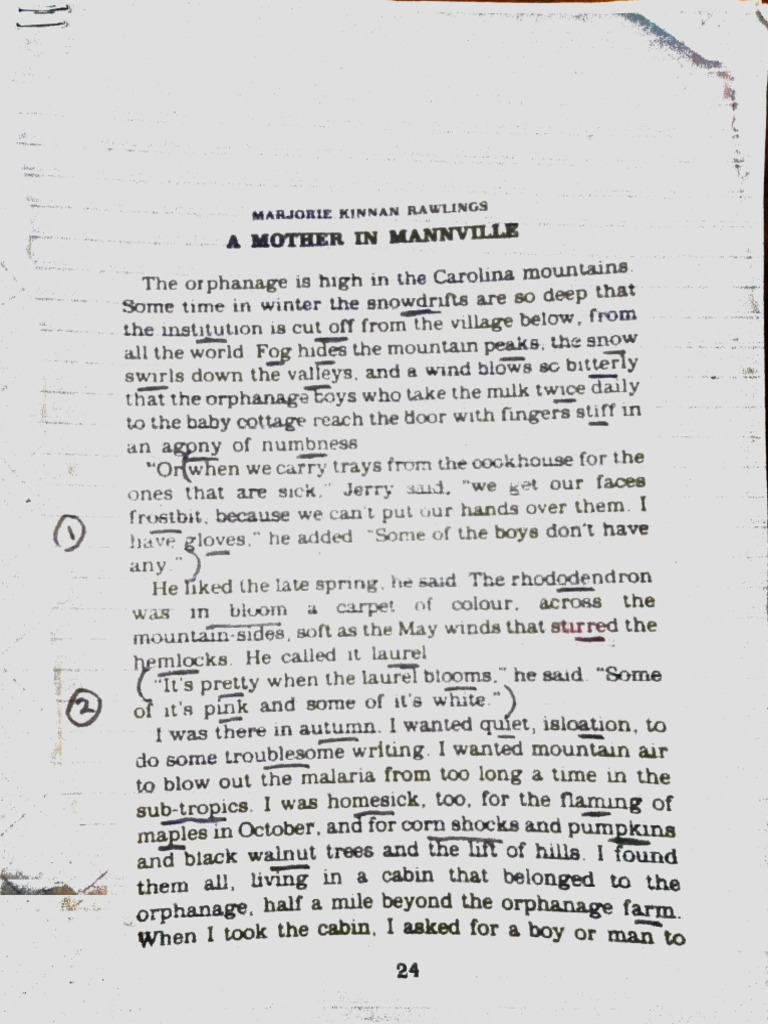 MARJORIE KINNAN RAWLINGS
A MOTHER IN MANNVILLE
The orphanage is high in the Carolina mountains.
Some time in winter the snowdrifts are so deep that
the institution is cut off from the village below, from
all the world. Fog hides the mountain peaks, the snow
swirls down the valleys, and a wind blows so bitterly
that the orphanage boys who take the milk twice daily
to the baby cottage reach the door with fingers stiff in
an agony of numbness
"Or when we carry trays from the cookhouse for the
ones that are sick," Jerry said, "we get our faces
frostbit, because we can't put our hands over them. I
have gloves," he added "Some of the boys don't have
any."
1
He liked the late spring, he said. The rhododendron
was in bloom a carpet of colour, across the
mountain-sides, soft as the May winds that stirred the
hemlocks. He called it laurel
"It's pretty when the laurel blooms," he said. "Some
of it's pink and some of it's white."
2
I was there in autumn. I wanted quiet, isloation, to
do some troublesome writing. I wanted mountain air
to blow out the malaria from too long a time in the
sub-tropics. I was homesick, too, for the flaming of
maples in October, and for corn shocks and pumpkins
and black walnut trees and the lift of hills. I found
them all, living in a cabin that belonged to the
orphanage, half a mile beyond the orphanage farm.
When I took the cabin, I asked for a boy or man to
24